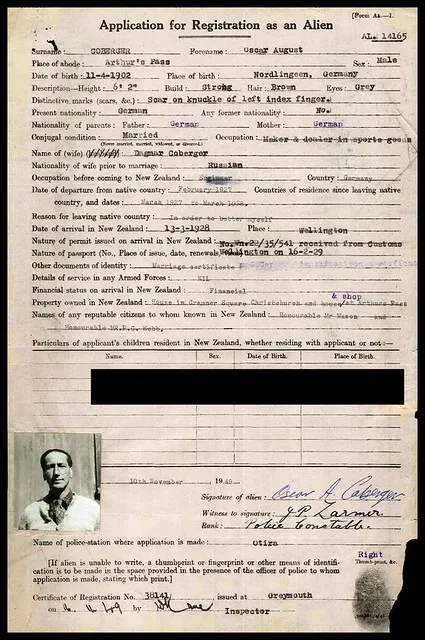 [Form A.—1.
Application for Registration as an Alien
AL. 14165
Surname : COBERGER Forename : Oscar August
Place of abode : Arthur's Pass Sex : Male
Date of birth : 11-4-1902 Place of birth : Nordlingen, Germany
Description—Height : 6' 2" Build : Strong Hair : Brown Eyes : Grey
Distinctive marks (scars, &c.) : Scar on knuckle of left index finger.
Present nationality : German Any former nationality : No.
Nationality of parents : Father : German Mother : German
Conjugal condition : Married Occupation : Maker & dealer in sports goods
(Never married, married, widowed, or divorced)
Name of (wife) Dagmar Coberger
Nationality of wife prior to marriage : Russian
Occupation before coming to New Zealand : Engineer Country : Germany
Date of departure from native country : February 1927 Countries of residence since leaving native
country, and dates : March 1927 to March 1928.
Reason for leaving native country : In order to better myself
Date of arrival in New Zealand : 13-3-1928 Place : Wellington
Nature of permit issued on arrival in New Zealand : No. Wn.22/35/541 received from Customs
Nature of passport (No., Place of issue, date, renewals) Wellington on 16-2-29
Other documents of identity : Marriage certificate
Details of service in any Armed Forces : NIL
Financial status on arrival in New Zealand : Financial
& shop
Property owned in New Zealand : House in Cranmer Square Christchurch and house at Arthurs Pass
Names of any reputable citizens to whom known in New Zealand : Honourable Mr Mason and
Honourable MR.P.C. Webb.
Particulars of applicant's children resident in New Zealand, whether residing with applicant or not :—
Name. Sex. Date of Birth. Place of Birth.
10th November , 1949
Signature of alien : Oscar A. Coberger
Witness to signature : J.P. Larmer
Rank : Police Constable.
Name of police-station where application is made : Otira
[If alien is unable to write, a thumbprint or fingerprint or other means of identifi-
cation is to be made in the space provided in the presence of the officer of police to whom
application is made, stating which print.]
Right
Thumb-print, &c.
Certificate of Registration No. 38141 issued at Greymouth
on 11 49 by
Inspector